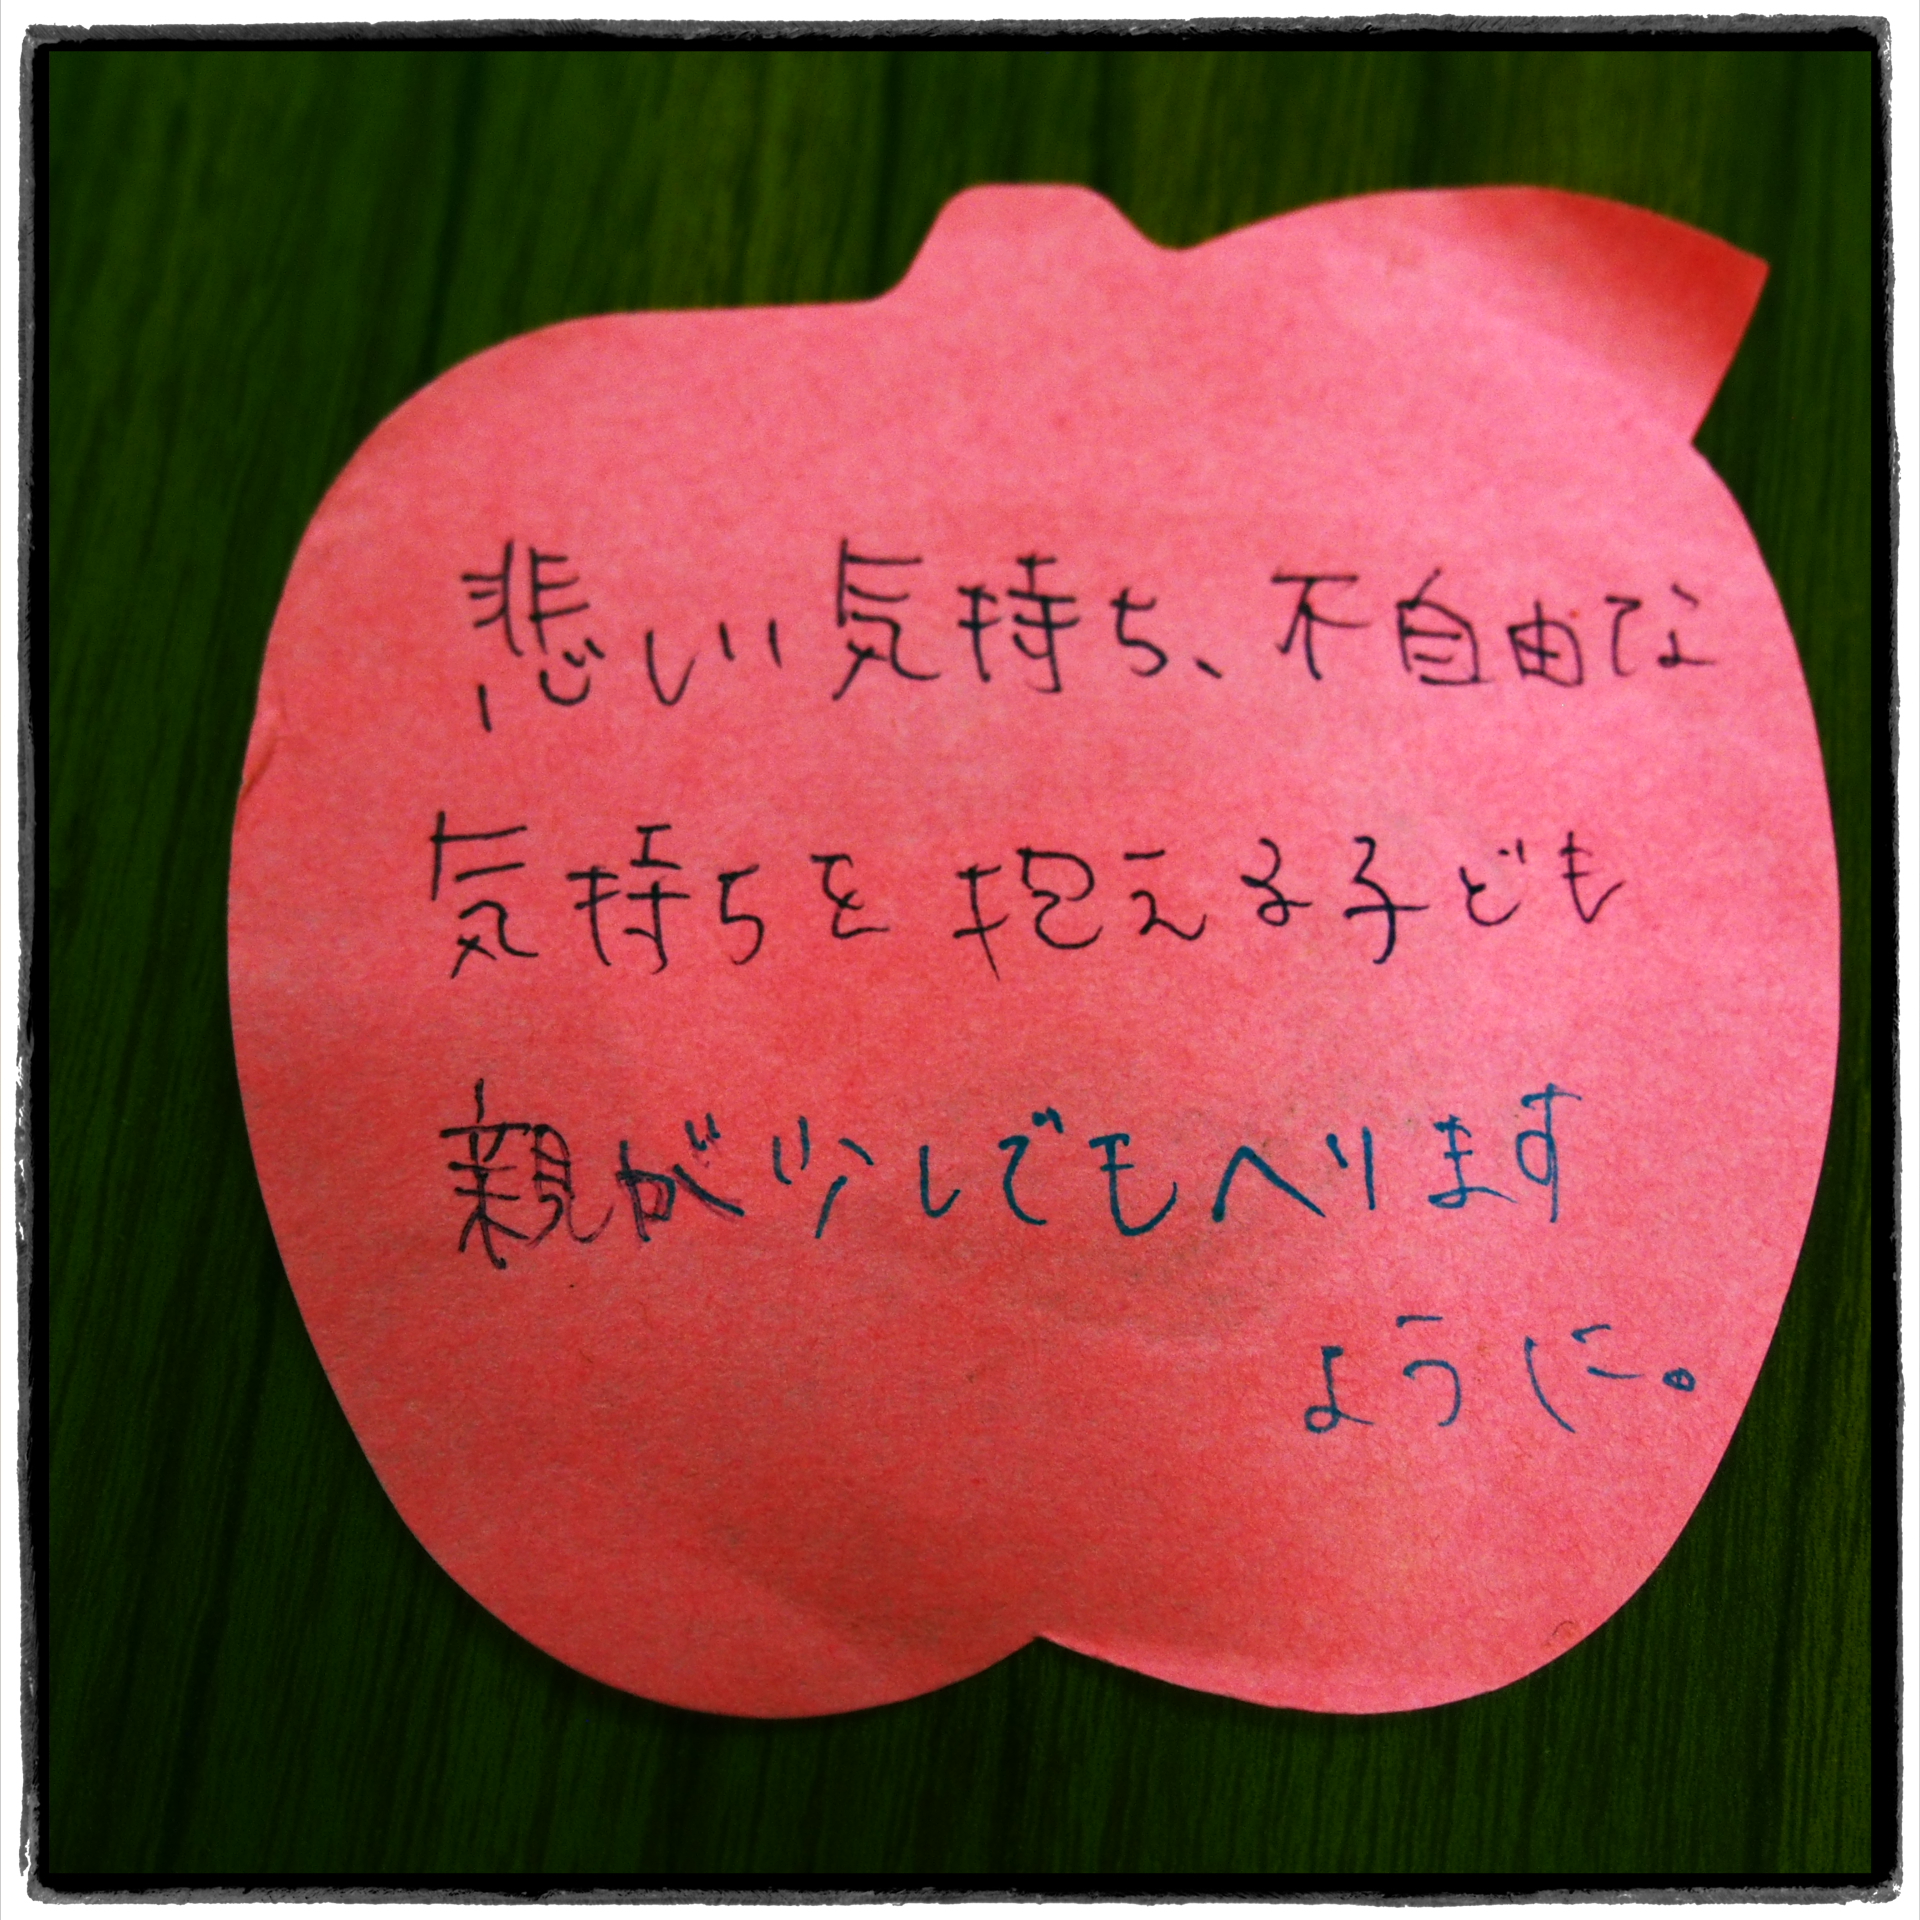 悲しい気持ち、不自由な
気持ちを抱える子ども
親が少しでもへります
ように。